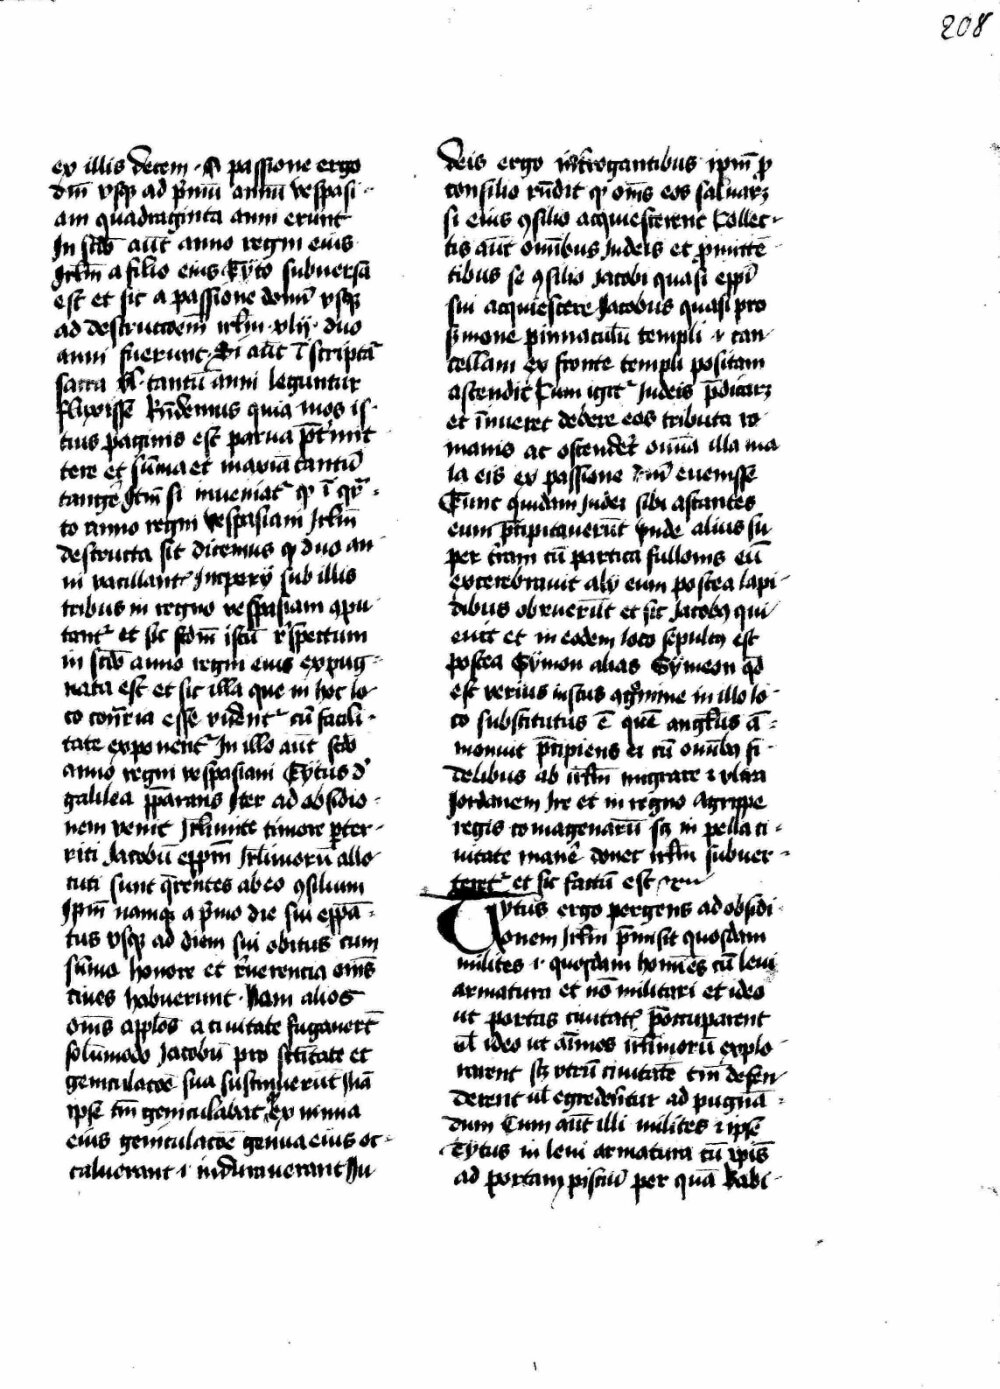 208
ex illis decem · A passione ergo
dn̄i vsqȝ ad p̄mū annū vespasi-
ani quadraginta anni erunt
In scd̄o aūt anno regni eius
Jrl̄m a filio eius Tyto subversa
est et sic a passione domī vsqȝ
ad destructōem̄ irl̄m · xlij · duo
anni fuerunt · Si aūt ī scriptᵃ
sacra xl · tantū anni leguntur
fluxisse Rn̄demus quia mos is-
tius paginis est parua p̄t̓mit
tere et sūma et maxīa tantū
tangēˀ Itm̄ si inueniatᷣ qꝫ ī q̓r-
to anno regni vespasiani Jrl̄m
destructa sit dicemus qꝫ duo an
ni vacillantᷣ Imperij sub illis
tribus in regno vespasiani ꝯpu
tantᷣ et sic scd̄m istū r̓spectum
in scd̄o anno regni eius expug-
nata est et sic illa que in hoc lo-
co cōtr̄ria esse vident̄ᷣ cū facili-
tate exponentᷣ In illo aūt scd̄o
anno regni vespasiani Tytus d̓
galilea p̄parans Iter ad obsidio-
nem venit Jrl̄imite timore p̄ter-
riti Jacobū ep̄pm̄ Jrl̄imorū allo
cuti sunt q̄rentes ab eo ꝯsilium
Ip̄m namqȝ a p̄mo die sui ep̄pā-
tus vsqȝ ad diem sui obitus cum
sūmo honore et r̓uerencia om̄s
ciues habuerunt · Nam alios
om̄s app̄los a ciuitate fugauer̄t
solūmodo Jacobū pro sc̄titate et
geniculacōe sua sustinuerūt Nā
ip̄se tm̄ geniculabat ex nimia
eius geniculacōe genua eius oc-
caluerant ⁊ indurauerant Ju
deis ergo int̓rogantibus ip̄m p
consilio rn̄dit qꝫ om̄s eos saluarȝ
si eius ꝯsilio acquiescerent Collec-
tis aūt om̄ibus Judeis et p̄mittē-
tibus se ꝯsilio Jacobi quasi ep̄pi
sui acquiescere Jacobus quasi pro
sermone pinnaculū templi ⁊ can-
cellam ex fronte templi positam
ascendit Cum igitᷣ Judeis p̄dicarȝ
et īueret debere eos tributa ro
manis ac ostender̓ om̄ia illa ma
la eis ex passione dn̄i euenisse
Tunc quidam Judei sibi astantes
eum p̄cipitauerūt vnde alius su
per t̓ram cū partica fullonis eū
excerebrauit alij eum postea lapi-
dibus obruerūt et sic Jacobꝰ qui
euit et in eodem loco sepultꝰ est
Postea Symon alias Symeon qd̄
est verius iustus ꝯg̓nmine in illo lo-
co substitutus ē quē anglūs ā-
monuit p̄cipiens ei cū om̄ibꝰ fi-
delibus ab irl̄m migrare ⁊ vltra
Jordanem Ire et in regno Agrippe
regis comagenarū scȝ in pella ci-
uitate manēˀ donec irl̄m subuer-
teretᷣ et sic factū est
Tytus ergo pergens ad obsidi-
onem Jrl̄m p̄misit quosdam
milites ⁊ quosdam homīes cū leui
armatura et nō militari et ideo
ut portas ciuitatꝭ p̄occuparent
vl̄ ideo ut aīmos irl̄imorū explo
rarent scȝ vtrū ciuitatē tm̄ defen
derent vl̄ egredent̓ur ad pugnā-
dum Cum aūt illi milites ⁊ ip̄se
Tytus in leui armatura cū ip̄is
ad portam pisciū per quā habi-